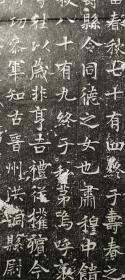 春秋七十有四終于壽春之
縣令同德之女也肅穆中饋
秋八十有九終于第嗚呼
以歲非亨吉禮從權窆今
參軍知古晉州洪洞縣尉